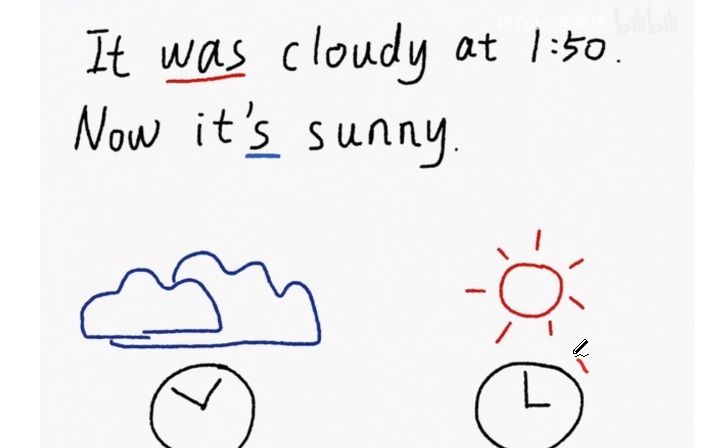 It was cloudy at 1:50.
Now it's sunny.
bilibili